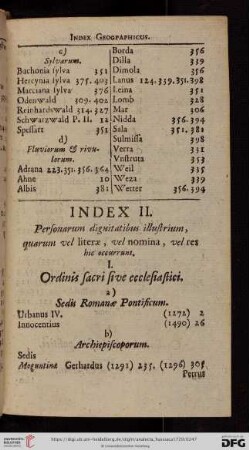 INDEX GEOGRAPHICUS.
c)
Sylvarum.
Buchonia sylva 351
Hercynia sylva 375. 403
Marciana sylva 376
Odenwald 309. 402
Reinhardswald 314. 327
Schwarzwald P. II. 12
Spessart 351
d)
Fluviorum & rivulorum.
Adrana 223. 351. 356. 364
Ahne 10
Albis 381
Borda 356
Dilla 339
Dimola 356
Lanus 124. 339. 351. 398
Leina 351
Lomb 328
Mar 306
Nidda 356. 394
Sala 351. 381
Sulmissa 398
Verra 331
Vnstruta 353
Weil 335
Weza 339
Wetter 356. 394
INDEX II.
Personarum dignitatibus illustrium,
quarum vel literæ, vel nomina, vel res
hic occurrunt.
I.
Ordinis sacri sive ecclesiastici.
a)
Sedis Romanæ Pontificum.
Urbanus IV. (1272) 2
Innocentius (1490) 26
b)
Archiepiscoporum.
Sedis
Moguntinæ Gerhardus (1291) 235. (1296) 305
Petrus